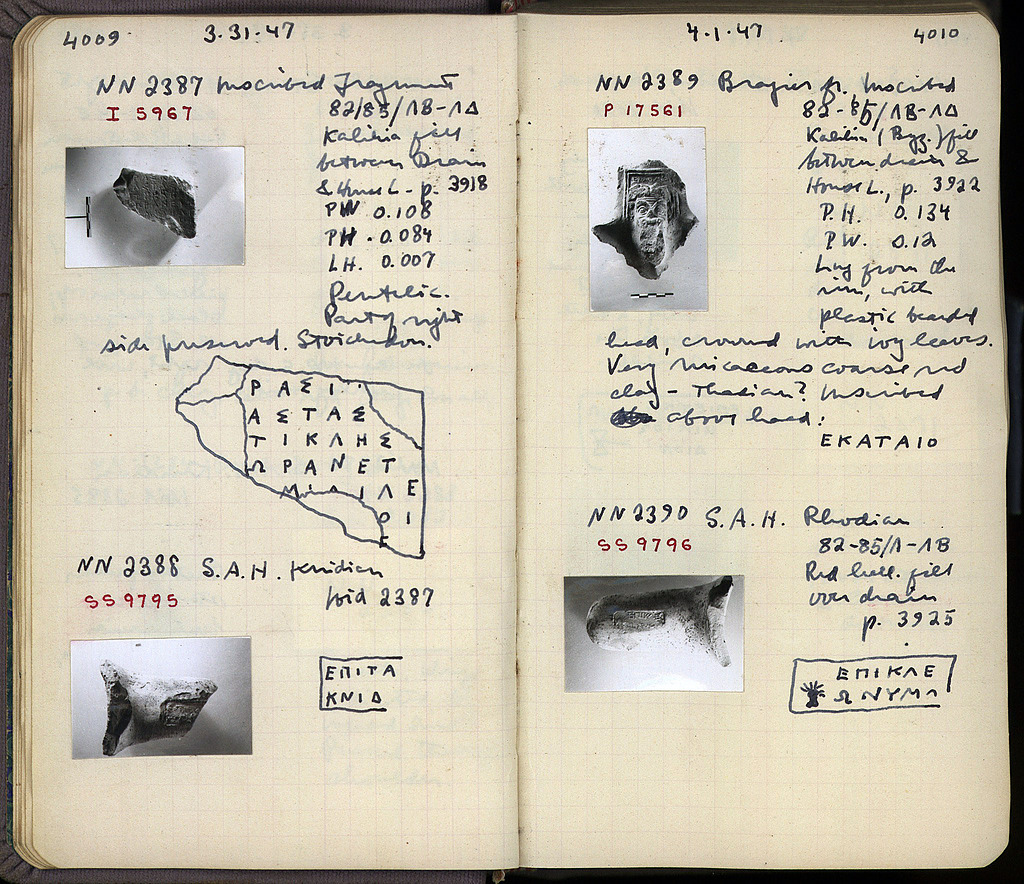 4009 3·31·47
NN 2387 Inscribed Fragment
I 5967
82/85/ΛΒ-ΛΔ
fill
between Drain
& House L - p. 3918
PW 0.108
PH. 0.084
LH. 0.007
Pentelic.
Part of right
side preserved. Stoichedon.
ΡΑΣΙ
ΑΣΤΑΣ
ΤΙΚΛΗΣ
ΩΡΑΝΕΤ
ΙΛΕ
ΟΙ
NN 2388 S.A.H. Knidian
SS 9795
Ibid 2387
ΕΠΙΤΑ
ΚΝΙΔ
4·1·47 4010
NN 2389 Brazier fr. Inscribed
P 17561
82-85/ΛΒ-ΛΔ
(Byz.) fill
between drain &
House L., p. 3922
P.H. 0.134
P.W. 0.12
Lug from the
rim, with
plastic bearded
head, crowned with ivy leaves.
Very micaceous coarse red
clay - Thasian? Inscribed
above head:
ΕΚΑΤΑΙΟ
NN 2390 S.A.H. Rhodian
SS 9796
82-85/Λ-ΛΒ
Red hell. fill
over drain
p. 3925
ΕΠΙΚΛΕ
ΩΝΥΜΛ